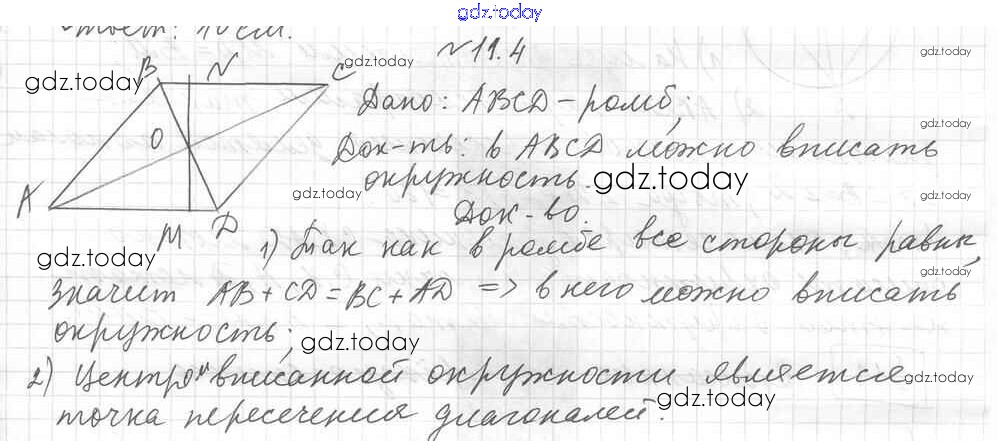 gdz.today
Ответ: 10 см.
№ 11.4
B N C
gdz.today
gdz.today
gdz.today
Дано: ABCD – ромб;
O
gdz.today
Док-ть: в ABCD можно вписать
окружность.
gdz.today
gdz.today
gdz.today
A
Док-во.
M D
1) Так как в ромбе все стороны равны,
gdz.today
gdz.today
значит AB + CD = BC + AD => в него можно вписать
gdz.today
окружность;
gdz.today
2) Центром вписанной окружности является
gdz.today
точка пересечения диагоналей.
gdz.today